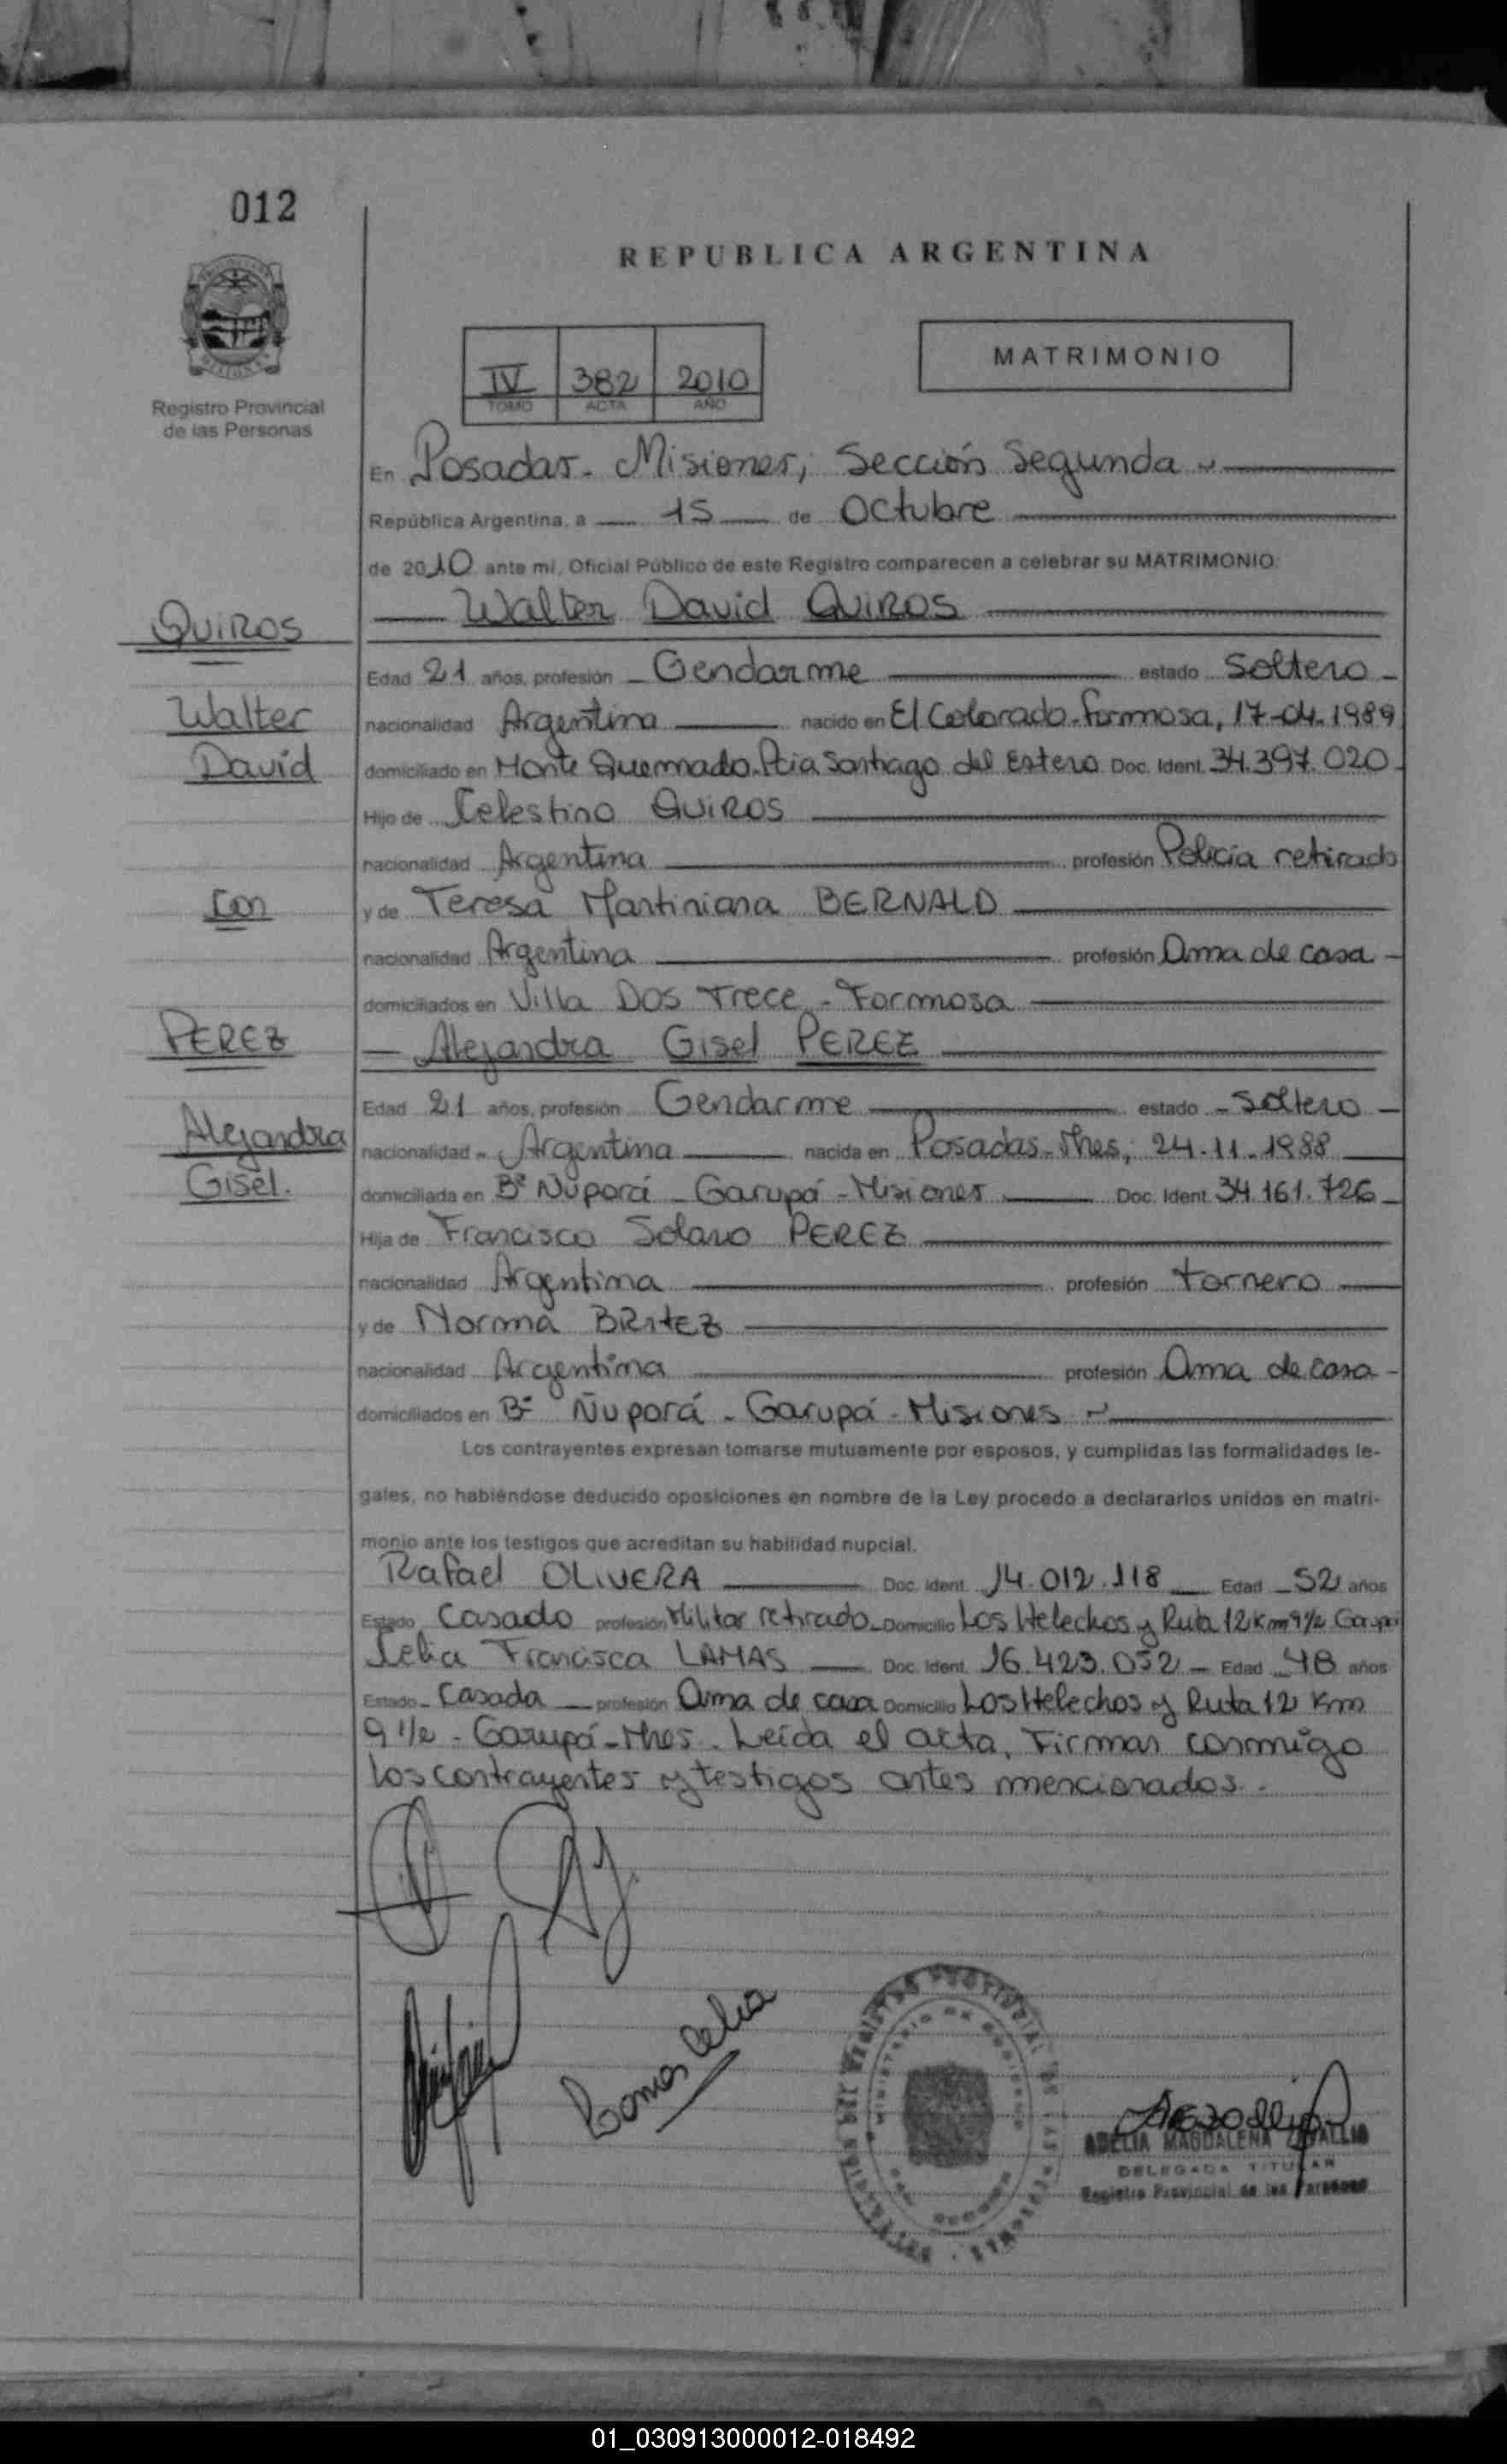 012
REPUBLICA ARGENTINA
IV 382 2010
TOMO ACTA AÑO
MATRIMONIO
Registro Provincial
de las Personas
En Posadas - Misiones, Sección Segunda
República Argentina, a 15 de Octubre
de 2010 ante mi, Oficial Público de este Registro comparecen a celebrar su MATRIMONIO:
Walter David QUIROS
QUIROS
Edad 21 años, profesión Gendarme estado Soltero
Walter
nacionalidad Argentina nacido en El Colorado-Formosa, 17-04-1989
David
domiciliado en Monte Quemado. Pcia Santiago del Estero Doc. Ident. 34.397.020
Hijo de Celestino QUIROS
nacionalidad Argentina profesión Policía retirado
Con
y de Teresa Martiniana BERNALD
nacionalidad Argentina profesión Ama de casa
domiciliados en Villa Dos Trece - Formosa
PEREZ
Alejandra Gisel PEREZ
Edad 21 años, profesión Gendarme estado Soltero
Alejandra
nacionalidad Argentina nacida en Posadas-Mnes, 24.11.1988
Gisel.
domiciliada en Bº Ñuporá - Garupá - Misiones Doc. Ident. 34.161.726
Hija de Francisco Solano PEREZ
nacionalidad Argentina profesión tornero
y de Norma BRITEZ
nacionalidad Argentina profesión Ama de casa
domiciliados en Bº Ñuporá - Garupá - Misiones
Los contrayentes expresan tomarse mutuamente por esposos, y cumplidas las formalidades le-
gales, no habiéndose deducido oposiciones en nombre de la Ley procedo a declararlos unidos en matri-
monio ante los testigos que acreditan su habilidad nupcial.
Rafael OLIVERA Doc. Ident. 14.012.118 Edad 52 años
Estado Casado profesión Militar retirado Domicilio Los Helechos y Ruta 12 Km 9 1/2 Garupá
Celia Francisca LAMAS Doc. Ident. 16.423.052 Edad 48 años
Estado Casada profesión Ama de casa Domicilio Los Helechos y Ruta 12 Km
9 1/2 - Garupá-Mnes. Leída el acta, Firman conmigo
los contrayentes y testigos antes mencionados.
Celia
ADELIA MAGDALENA
DELEGADA TITULAR
Registro Provincial de las Personas
01_030913000012-018492